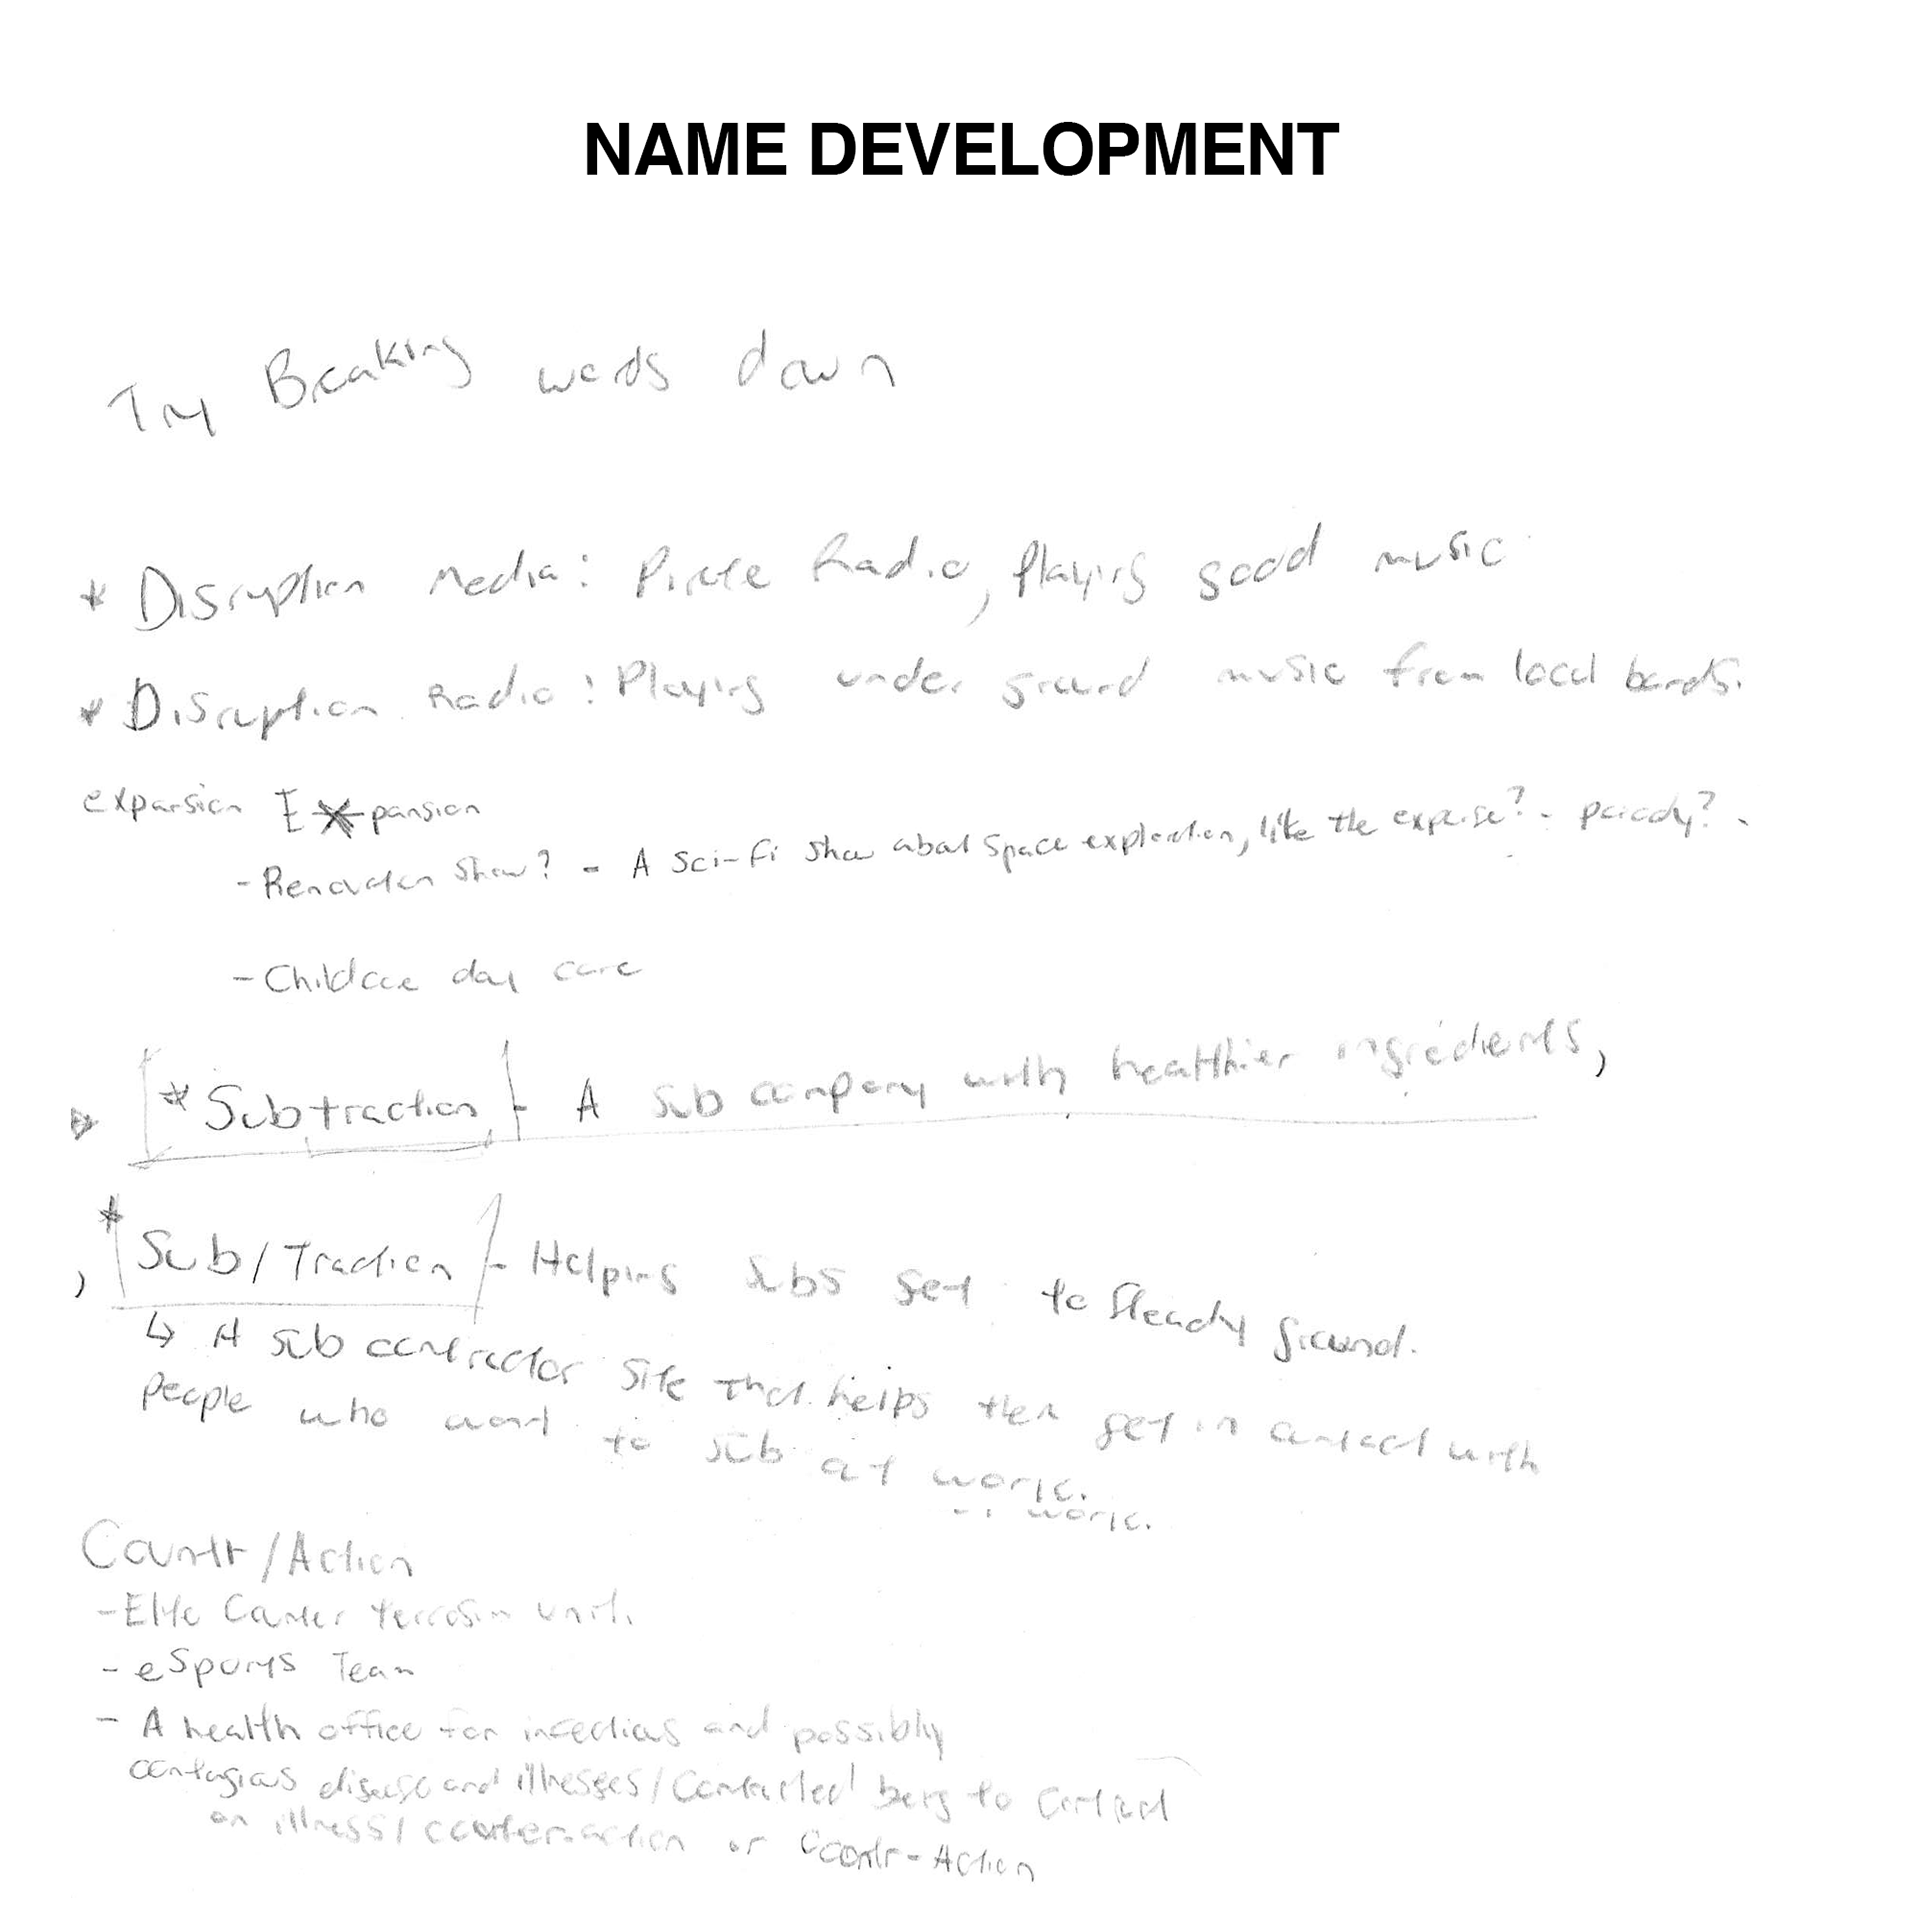 NAME DEVELOPMENT
Try Breaking words down
* Disruption Media: Pirate Radio, Playing good music
* Disruption Radio: Playing under ground music from local bands.
expansion EXpansion
- Renovation Show? - A Sci-Fi show about space exploration, like the expanse? - parody? -
- Childcare day care
* Subtraction - A sub company with healthier ingredients,
, * Sub/Traction - Helping subs get to steady ground.
↳ A sub contractor site that helps them get in contact with
people who want to sub at work.
work.
Countr/Action
- Elite Counter terrosim unit.
- eSports Team
- A health office for infectious and possibly
contagious disease and illnesses/Contacted being to Contact
an illness/counteraction or Countr-Action